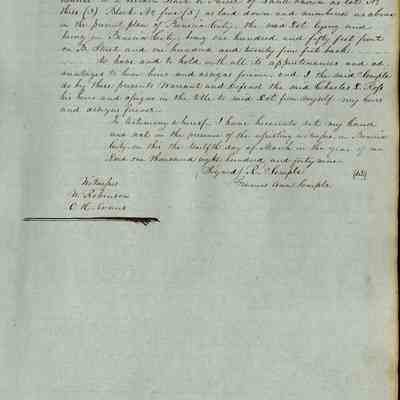 certain Tract or Parcel of Land known as Lot No
three (3) Block No five (5) as laid down and numbered as above
in the present plan of Benicia City, the said Lot lying and
being in Benicia City, being one hundred and fifty feet front
on D. Street and one hundred and twenty five feet back.
To have and to hold with all its appurtenances and ad-
vantages to him heirs and assigns forever. and I the said Semple
do by these presents Warrant and Defend the said Charles L. Ross
his heirs and assigns in the title to said Lot from myself my heirs
and assigns forever.
In testimony whereof I have hereunto set my hand
and seal in the presence of the subscribing witnesses in Benicia
City on this the twelfth day of March in the year of our
Lord one thousand eight hundred and forty nine.
(Signed) R. Semple
Frances Ann Semple
Witnesses
W. Robinson
C. H. Evans